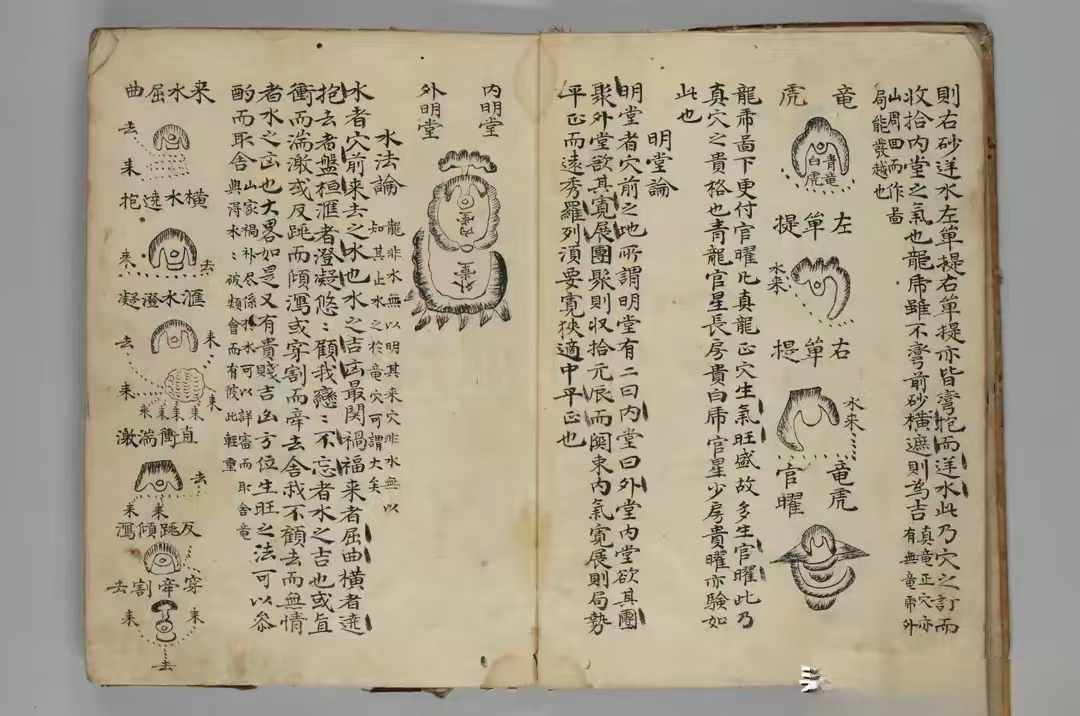 則右砂逆水左單提右單提亦皆彎抱而逆水此乃穴之訂而
收拾內堂之氣也龍虎雖不彎前砂橫遮則為吉
真竜正穴亦
有無竜虎外
山周回而作啚
局能發越也
竜
虎
青竜
白虎
左單提
水来
右單提
水来
竜虎
官曜
龍虎啚下更付官曜凡真龍正穴生氣旺盛故多生官曜此乃
真穴之貴格也青龍官星長房貴白虎官星少房貴曜亦驗如
此也
明堂論
明堂者穴前之地所謂明堂有二曰內堂曰外堂內堂欲其團
聚外堂欲其寬展團聚則收拾元辰而関束內氣寬展則局勢
平正而遠秀羅列須要寬狹適中平正也
內明堂
外明堂
水法論
龍非水無以明其来穴非水無以
知其止水之於竜穴可謂大矣
水者穴前来去之水也水之吉凶最関禍福来者屈曲橫者遶
抱去者盤桓滙者澄凝悠〻顧我戀〻不忘者水之吉也或直
衝而湍激或反跳而傾瀉或穿割而牽去舍我不顧去而無情
者水之凶也大畧如是又有貴賤吉凶方位生旺之法可以叅
酌而取舍
山家禍福尽係於水可以詳審而取舍竜
與得水〻破類會而有陵此輕重
来水屈曲
去
来
橫水遶抱
来
去
滙水澄凝
去
来
来
来
来
来
来
直衝湍激
去
来
来
反跳傾瀉
穿割牽去
来
来
去